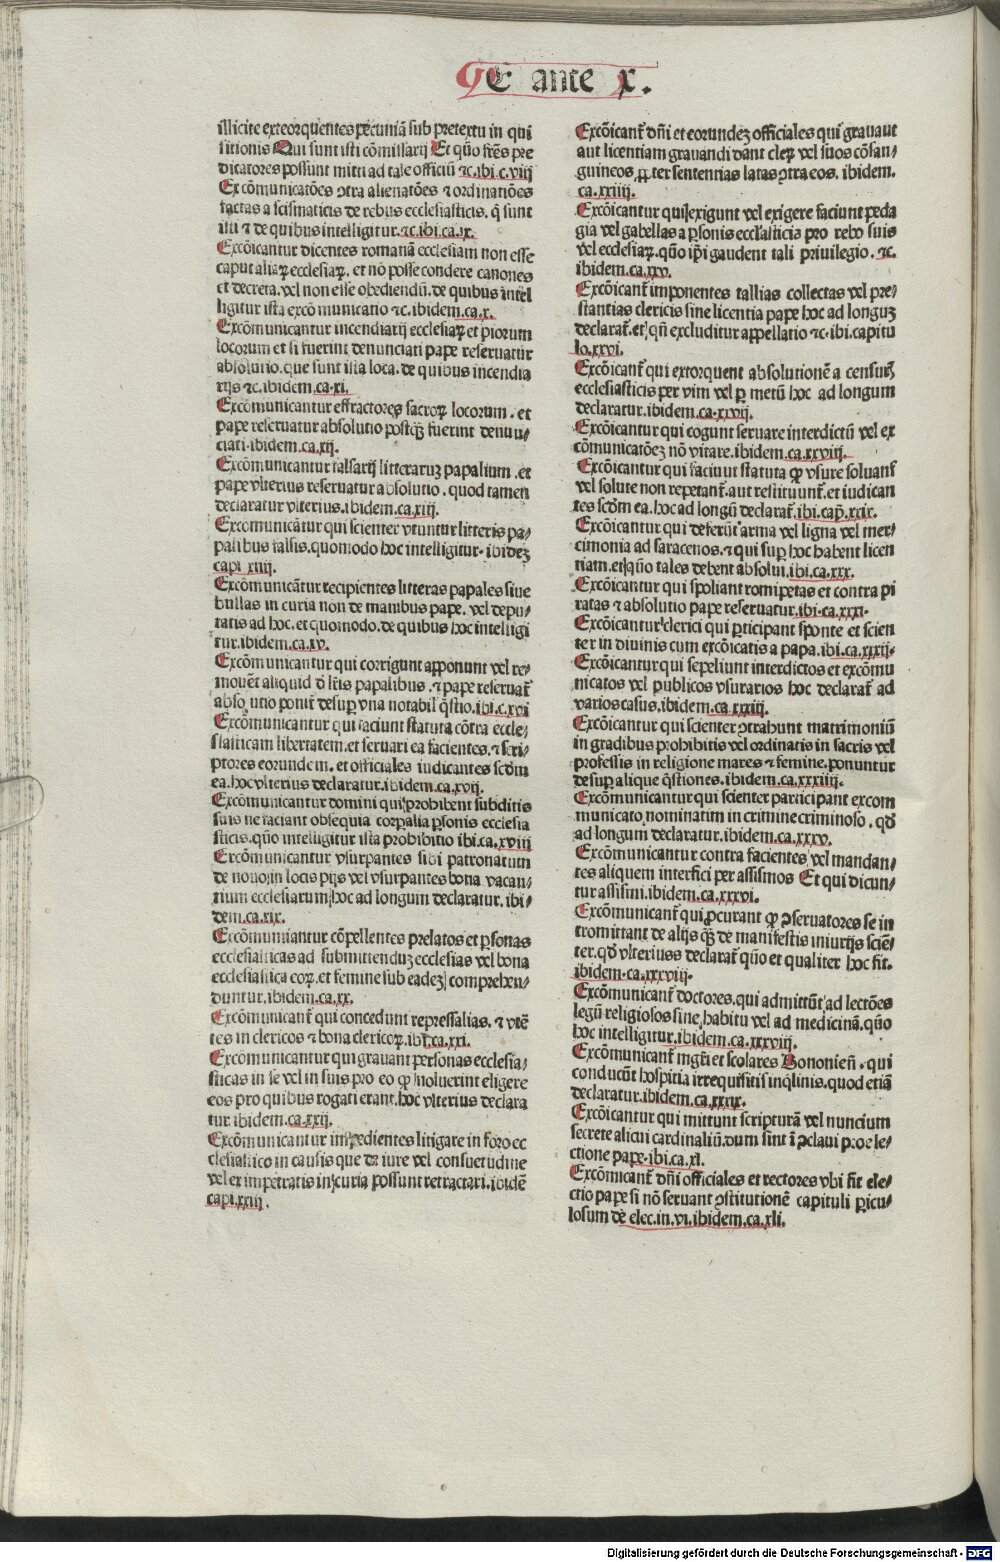 E ante x.
illicite extorquentes pecuniã sub pretextu in qui
sitionis Qui sunt isti cõmissarij Et quõ frẽs pre
dicatores possunt mitti ad tale officiũ ⁊c.ibi.c.viij
Ex cõmunicatões ꝯtra alienatões ⁊ ordinatiões
factas a scismaticis de rebus ecclesiasticis. q̃ sunt
isti ⁊ de quibus intelligitur.⁊c.ibi.ca.ix.
Excõicantur dicentes romanã ecclesiam non esse
caput aliaꝝ ecclesiaꝝ. et nõ posse condere canones
et decreta. vel non esse obediendũ. de quibus intel
ligitur ista excõ municatio ⁊c. ibidem.ca.x.
Excõmunicantur incendiarij ecclesiaꝝ et piorum
locorum et si fuerint denunciati pape reseruatur
absolutio. que sunt ista loca. de quibus incendia
rijs ⁊c. ibidem.ca.xi.
Excõmunicantur effractores sacroꝝ locorum. et
pape reseruatur absolutio postqꝫ fuerint denun⸗
ciati. ibidem.ca.xij.
Excõmunicantur falsarij litteraruꝫ papalium. et
pape vlterius reseruatur absolutio. quod tamen
declaratur vlterius. ibidem.ca.xiij.
Excomunicãtur qui scienter vtuntur litteris pa⸗
palibus falsis. quomodo hoc intelligitur. ibideꝫ
capi xiiij.
Excõmunicãtur recipientes litteras papales siue
bullas in curia non de manibus pape. vel depu⸗
tatis ad hoc. et quomodo. de quibus hoc intelligi
tur. ibidem.ca.xv.
Excõmunicantur qui corrigunt apponunt vel re⸗
mouẽt aliquid d̃ lr̃is papalibus. ⁊ pape reseruat᷑
absolutio ponit᷑ desuꝑ vna notabil q̃stio.ibi.c.xvi
Excõmunicantur qui faciunt statuta cõtra eccle⸗
siasticam libertatem. et seruari ea facientes. ⁊ scri⸗
ptores eorundem. et officiales iudicantes scd̃m
ea. hoc vlterius declaratur. ibidem.ca.xvij.
Excõmunicantur domini qui prohibent subditis
suis ne faciant obsequia corꝑalia ꝑsonis ecclesia
sticis. quõ intelligitur ista prohibitio ibi.ca.xviij
Excõmunicantur vsurpantes sibi patronatum
de nouo in locis pijs vel vsurpantes bona vacan⸗
tium ecclesiarum hoc ad longum declaratur. ibi⸗
dem.ca.xix.
Excõmuniantur cõpellentes prelatos et ꝑsonas
ecclesiasticas ad submittenduꝫ ecclesias vel bona
ecclesiastica eoꝝ. et femine sub eadeꝫ comprehen⸗
duntur. ibidem.ca.xx.
Excõmunicant᷑ qui concedunt repressalias. ⁊ vtẽ
tes in clericos ⁊ bona clericoꝝ. ibi.ca.xxi.
Excõmunicantur qui grauant personas ecclesia⸗
sticas in se vel in suis pro eo ꝙ noluerint eligere
eos pro quibus rogati erant. hoc vlterius declara
tur. ibidem.ca.xxij.
Excõmunicantur impedientes litigare in foro ec
clesiastico in causis que de iure vel consuetudine
vel ex impetratis in curia possunt retractari. ibidẽ
capi.xxiij.
Excõicant᷑ dñi et eorundeꝫ officiales qui grauant
aut licentiam grauandi dant cleꝝ vel suos cõsan⸗
guineos ꝓpter sententias latas ꝯtra eos. ibidem.
ca.xxiiij.
Excõicantur qui exigunt vel exigere faciunt peda
gia vel gabellas a ꝑsonis eccl̃asticis pro rebꝰ suis
vel ecclesiaꝝ. quõ ip̃i gaudent tali priuilegio. ⁊c.
ibidem.ca.xxv.
Excõicant᷑ imponentes tallias collectas vel pre⸗
stantias clericis sine licentia pape hoc ad longuꝫ
declarat᷑. et qñ excluditur appellatio ⁊c. ibi. capitu
lo.xxvi.
Excõicant᷑ qui extorquent absolutionẽ a censuris
ecclesiasticis per vim vel ꝑ metũ hoc ad longum
declaratur. ibidem.ca.xxvij.
Excõicantur qui cogunt seruare interdictũ vel ex
cõmunicatõeꝫ nõ vitare. ibidem.ca.xxviij.
Excõicantur qui faciunt statuta ꝙ vsure soluant᷑
vel solute non repetant᷑. aut restituunt᷑. et iudican
tes scd̃m ea. hoc ad longũ declarat᷑. ibi. cap̃. xxix.
Excõicantur qui deferũt arma vel ligna vel mer⸗
cimonia ad saracenos. ⁊ qui suꝑ hoc habent licen
tiam. et quõ tales debent absolui. ibi.ca.xxx.
Excõicantur qui spoliant romipetas et contra pi
ratas ⁊ absolutio pape reseruatur. ibi.ca.xxxi.
Excõicantur clerici qui ꝑticipant sponte et scien
ter in diuinis cum excõicatis a papa. ibi.ca.xxxij.
Excõicantur qui sepeliunt interdictos et excõmu
nicatos vel publicos vsurarios hoc declarat᷑ ad
varios casus. ibidem.ca.xxxiij.
Excõicantur qui scienter ꝯtrahunt matrimoniũ
in gradibus prohibitis vel ordinatis in sacris vel
professis in religione mares ⁊ femine. ponuntur
desuꝑ alique q̃stiones. ibidem.ca.xxxiiij.
Excõmunicantur qui scienter participant excom
municato nominatim in crimine criminoso. qd̃
ad longum declaratur. ibidem.ca.xxxv.
Excõmunicantur contra facientes vel mandan⸗
tes aliquem interfici per assismos Et qui dicun⸗
tur assismi. ibidem.ca.xxxvi.
Excõmunicant᷑ qui ꝓcurant ꝙ ꝯseruatores se in
tromittant de alijs qꝫ de manifestis iniurijs sciẽ⸗
ter. qd̃ vlteriuss declarat᷑ quõ et qualiter hoc fit.
ibidem.ca.xxxvij.
Excõmunicant᷑ doctores. qui admittũt ad lectões
legũ religiosos sine habitu vel ad medicinã. quõ
hoc intelligitur. ibidem.ca.xxxviij.
Excõmunicant᷑ mgr̃i et scolares Bononieñ. qui
conducũt hospitia irrequisitis inq̃linis. quod etiã
declaratur. ibidem.ca.xxxix.
Excõicantur qui mittunt scripturã vel nuncium
secrete alicui cardinaliũ. dum sint ĩ ꝯclaui pro ele⸗
ctione pape. ibi.ca.xl.
Excõmicant᷑ dñi officiales et rectores vbi fit ele⸗
ctio pape si nõ seruant ꝯstitutionẽ capituli ꝑicu⸗
losum de elec. in. vi. ibidem.ca.xli.
Digitalisierung gefördert durch die Deutsche Forschungsgemeinschaft - DFG